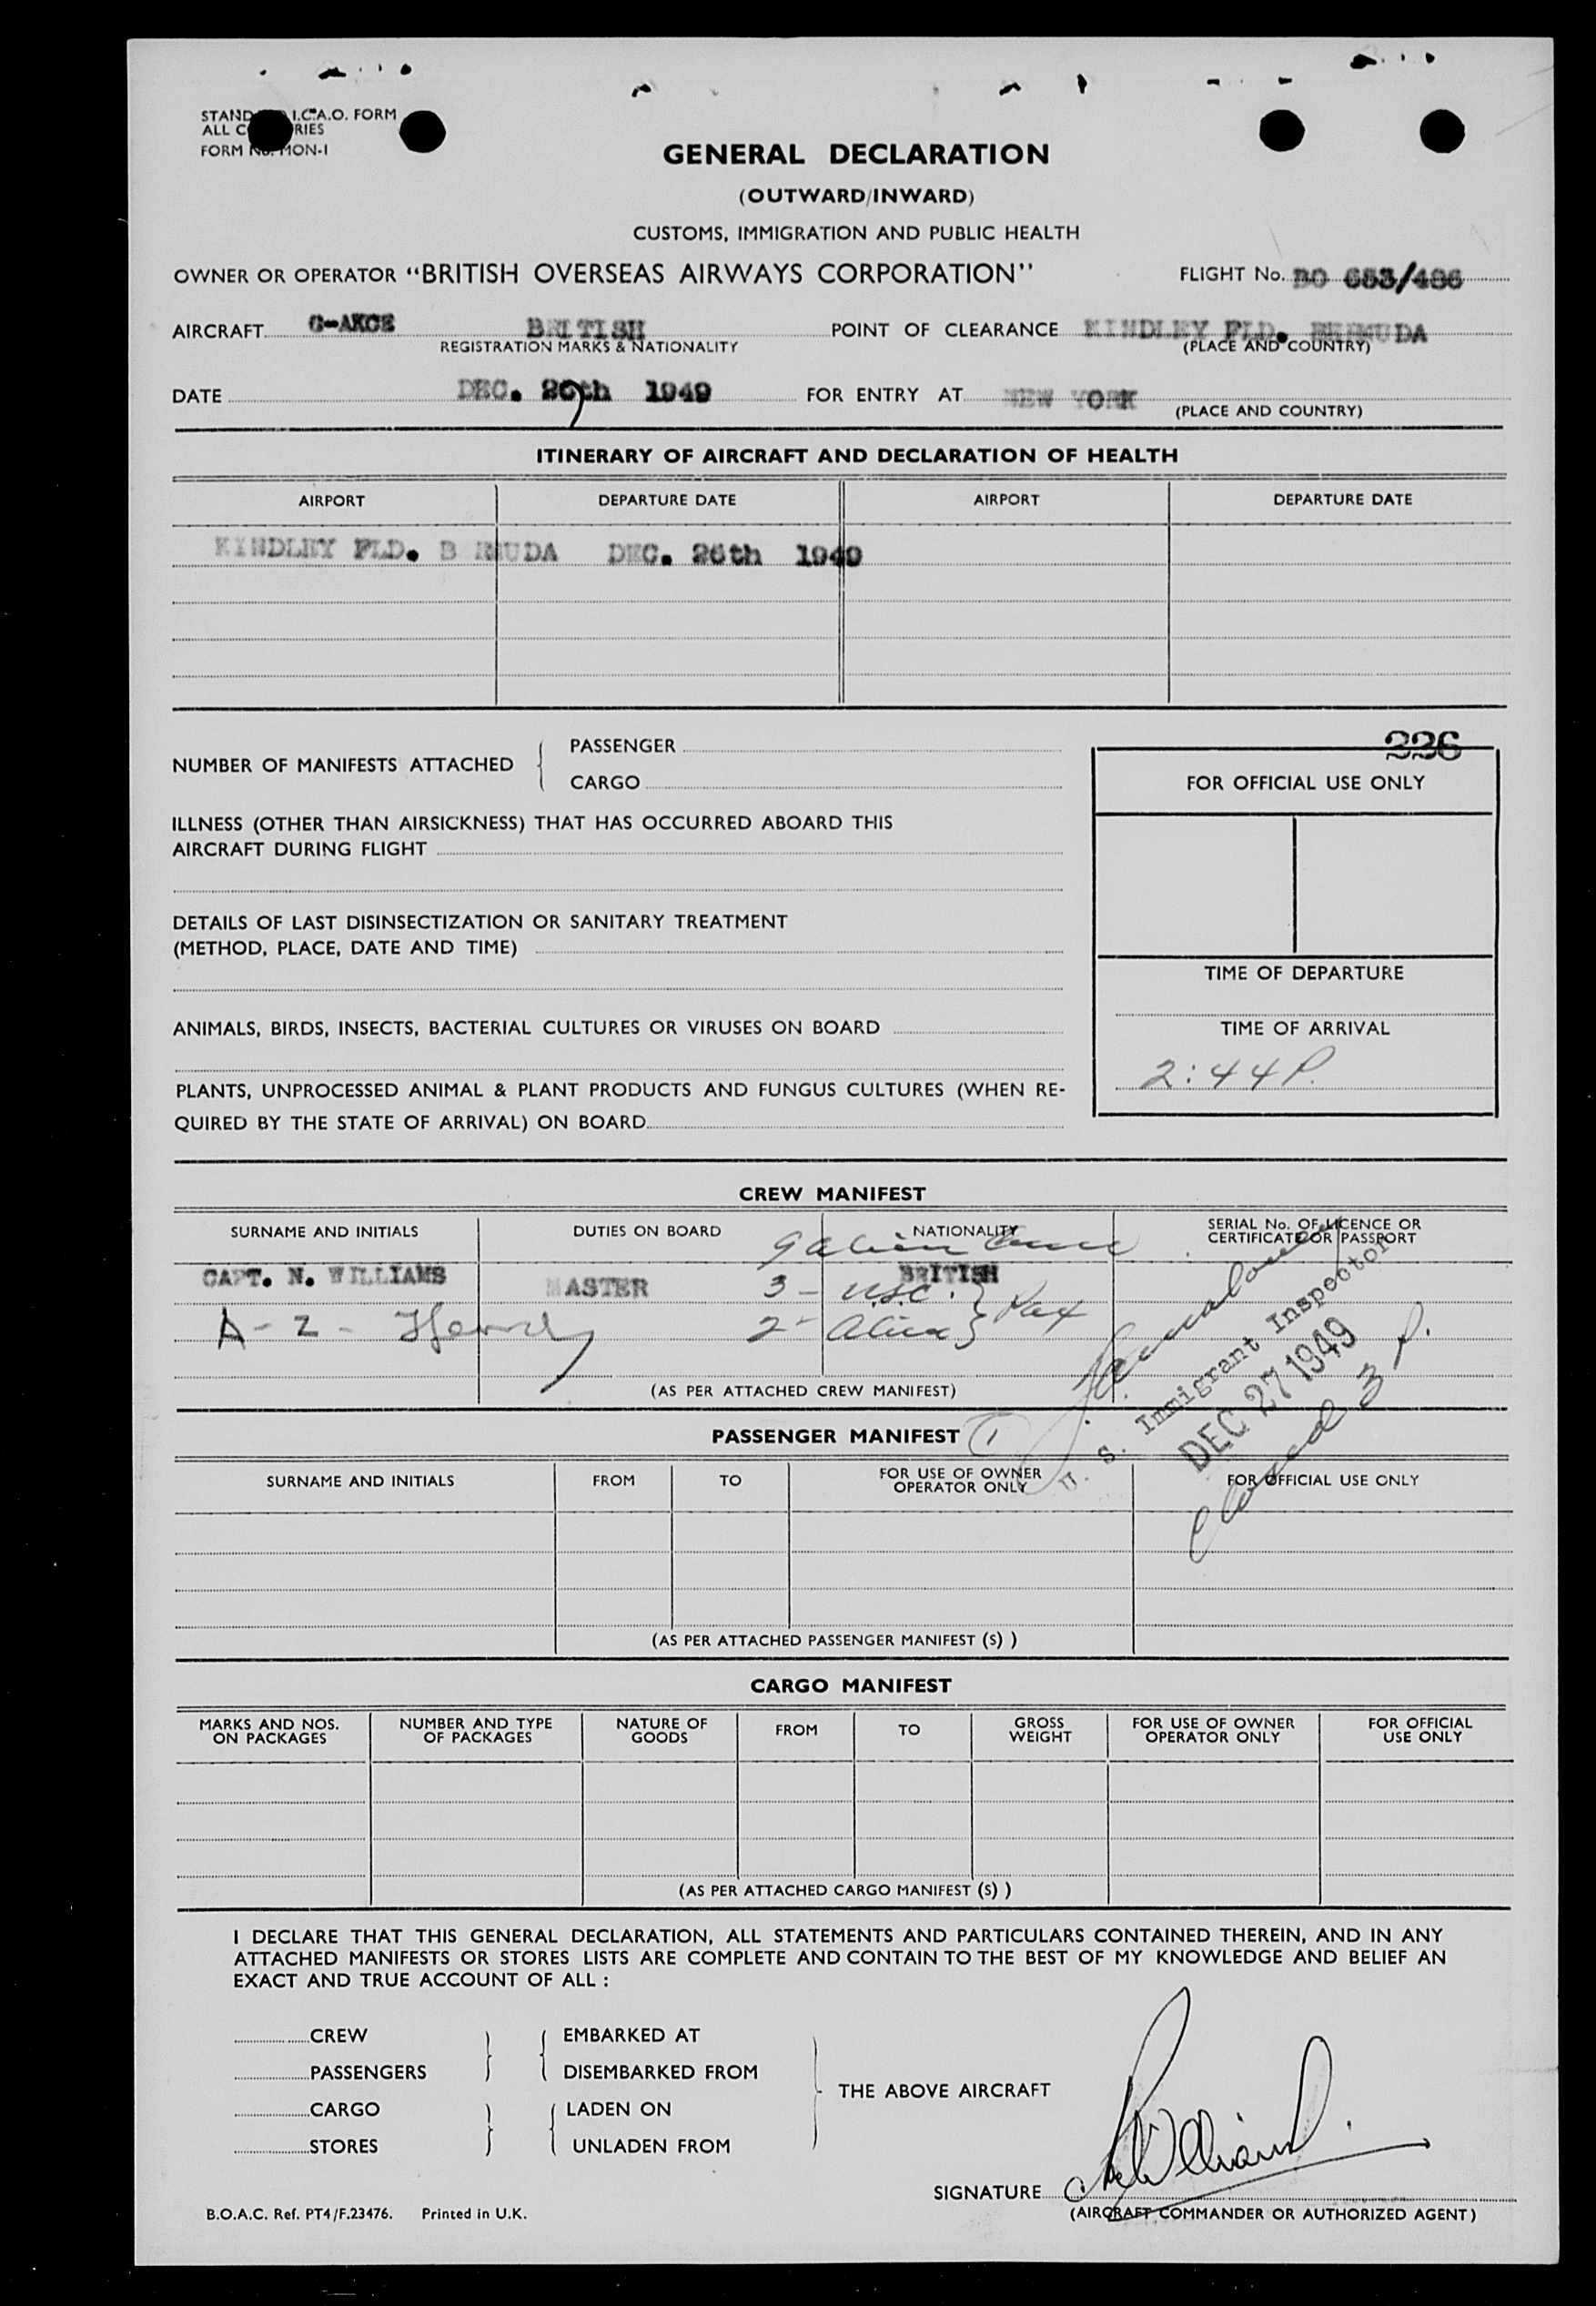 I.C.A.O. FORM
FORM No. MON-1
GENERAL DECLARATION
(OUTWARD/INWARD)
CUSTOMS, IMMIGRATION AND PUBLIC HEALTH
OWNER OR OPERATOR "BRITISH OVERSEAS AIRWAYS CORPORATION" FLIGHT No. BO 653/486
AIRCRAFT G-AKCE BRITISH POINT OF CLEARANCE KINDLEY FLD. BERMUDA
REGISTRATION MARKS & NATIONALITY (PLACE AND COUNTRY)
DATE DEC. 27th 1949 FOR ENTRY AT NEW YORK
(PLACE AND COUNTRY)
ITINERARY OF AIRCRAFT AND DECLARATION OF HEALTH
AIRPORT DEPARTURE DATE AIRPORT DEPARTURE DATE
KINDLEY FLD. B MUDA DEC. 26th 1949
226
NUMBER OF MANIFESTS ATTACHED PASSENGER
CARGO
FOR OFFICIAL USE ONLY
ILLNESS (OTHER THAN AIRSICKNESS) THAT HAS OCCURRED ABOARD THIS
AIRCRAFT DURING FLIGHT
DETAILS OF LAST DISINSECTIZATION OR SANITARY TREATMENT
(METHOD, PLACE, DATE AND TIME)
TIME OF DEPARTURE
ANIMALS, BIRDS, INSECTS, BACTERIAL CULTURES OR VIRUSES ON BOARD
TIME OF ARRIVAL
2:44 P.
PLANTS, UNPROCESSED ANIMAL & PLANT PRODUCTS AND FUNGUS CULTURES (WHEN RE-
QUIRED BY THE STATE OF ARRIVAL) ON BOARD
CREW MANIFEST
SURNAME AND INITIALS DUTIES ON BOARD NATIONALITY SERIAL No. OF LICENCE OR
CERTIFICATE OR PASSPORT
9 alien crew
CAPT. N. WILLIAMS MASTER BRITISH
3 - USC. } Pax
A - 2 - 2 - alien }
U. S. Immigrant Inspector
DEC 27 1949
(AS PER ATTACHED CREW MANIFEST)
PASSENGER MANIFEST 1
SURNAME AND INITIALS FROM TO FOR USE OF OWNER
OPERATOR ONLY FOR OFFICIAL USE ONLY
3 P.
(AS PER ATTACHED PASSENGER MANIFEST (S) )
CARGO MANIFEST
MARKS AND NOS.
ON PACKAGES NUMBER AND TYPE
OF PACKAGES NATURE OF
GOODS FROM TO GROSS
WEIGHT FOR USE OF OWNER
OPERATOR ONLY FOR OFFICIAL
USE ONLY
(AS PER ATTACHED CARGO MANIFEST (S) )
I DECLARE THAT THIS GENERAL DECLARATION, ALL STATEMENTS AND PARTICULARS CONTAINED THEREIN, AND IN ANY
ATTACHED MANIFESTS OR STORES LISTS ARE COMPLETE AND CONTAIN TO THE BEST OF MY KNOWLEDGE AND BELIEF AN
EXACT AND TRUE ACCOUNT OF ALL :
CREW EMBARKED AT
PASSENGERS DISEMBARKED FROM
THE ABOVE AIRCRAFT
CARGO LADEN ON
STORES UNLADEN FROM
SIGNATURE N Williams.
(AIRCRAFT COMMANDER OR AUTHORIZED AGENT)
B.O.A.C. Ref. PT4/F.23476. Printed in U.K.